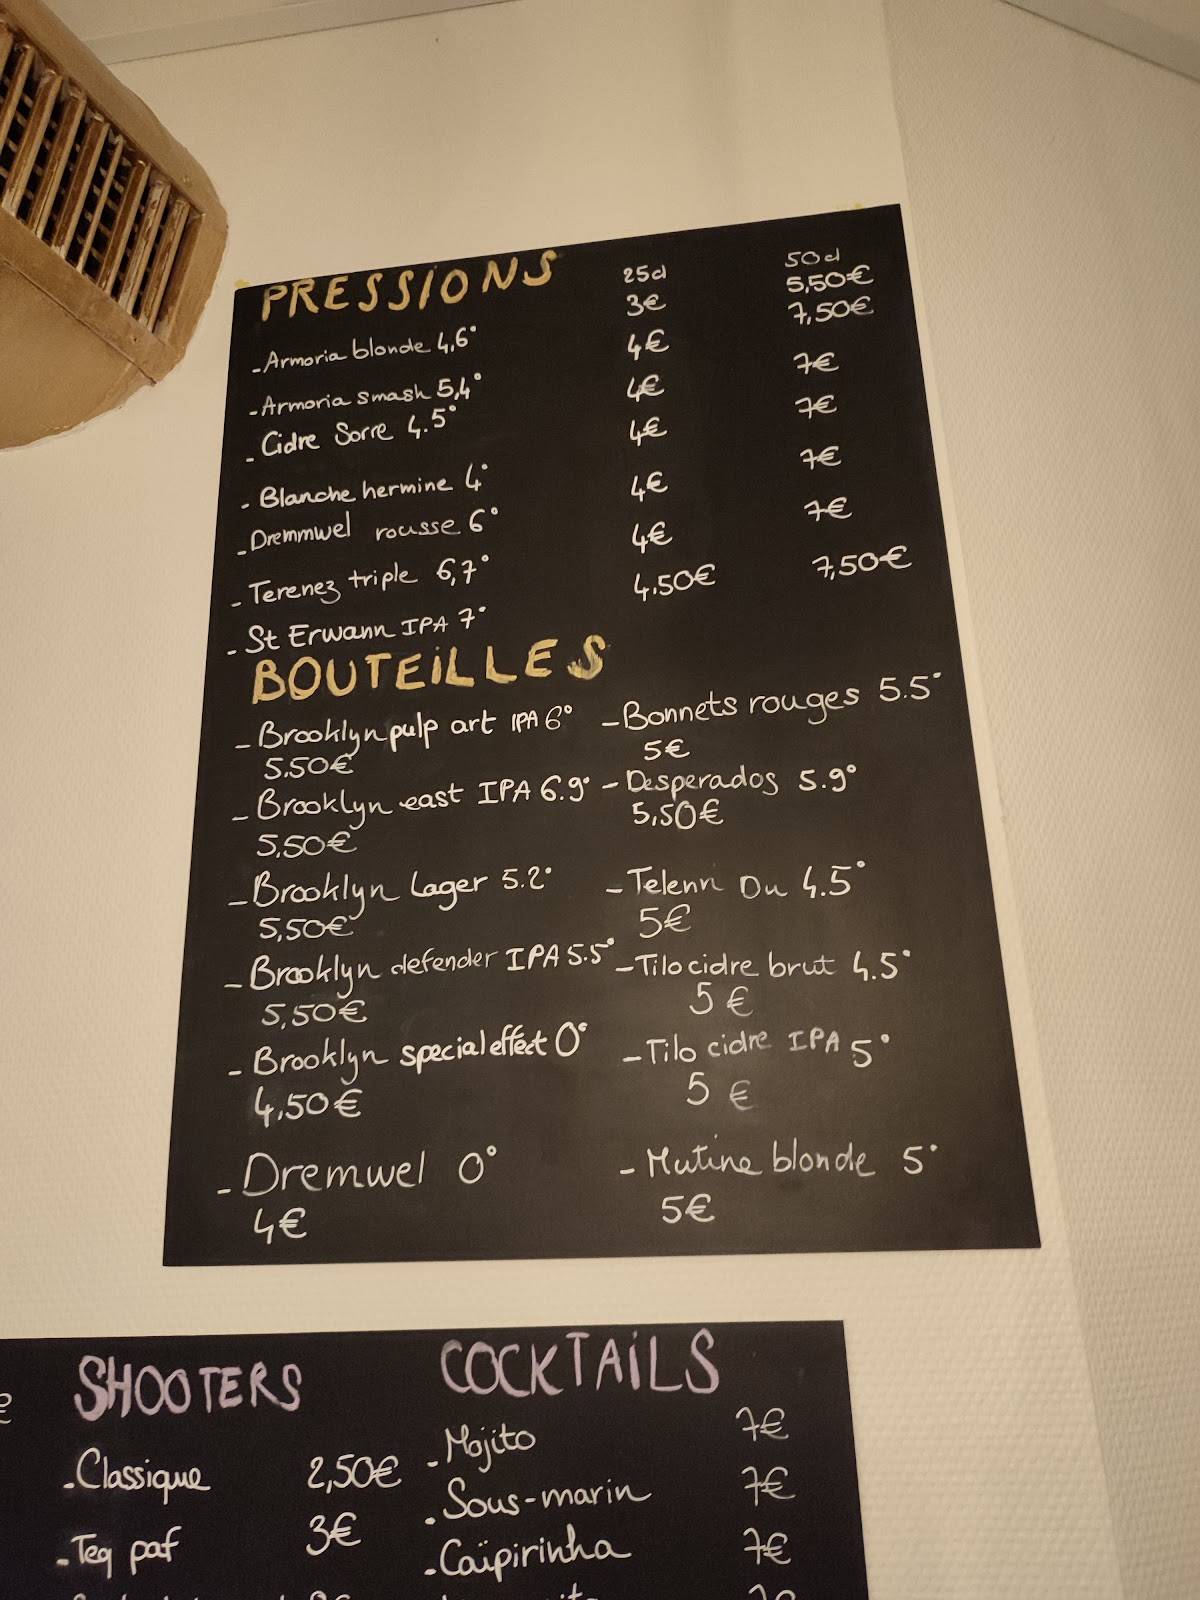 PRESSIONS 25cl 50cl
- Armoria blonde 4,6° 3€ 5,50€
- Armoria smash 5,4° 4€ 7,50€
- Cidre Sorre 4.5° 4€ 7€
- Blanche hermine 4° 4€ 7€
- Dremmwel rousse 6° 4€ 7€
- Terenez triple 6,7° 4€ 7€
- St Erwann IPA 7° 4,50€ 7,50€
BOUTEILLES
- Brooklyn pulp art IPA 6° - Bonnets rouges 5.5°
5,50€ 5€
- Brooklyn east IPA 6.9° - Desperados 5.9°
5,50€ 5,50€
- Brooklyn Lager 5.2° - Telenn Du 4.5°
5,50€ 5€
- Brooklyn defender IPA 5.5° - Tilo cidre brut 4.5°
5,50€ 5€
- Brooklyn special effect 0° - Tilo cidre IPA 5°
4,50€ 5€
- Dremwel 0° - Mutine blonde 5°
4€ 5€
SHOOTERS COCKTAILS
- Classique 2,50€ - Mojito 7€
- Teq paf 3€ - Sous-marin 7€
- Caïpirinha 7€